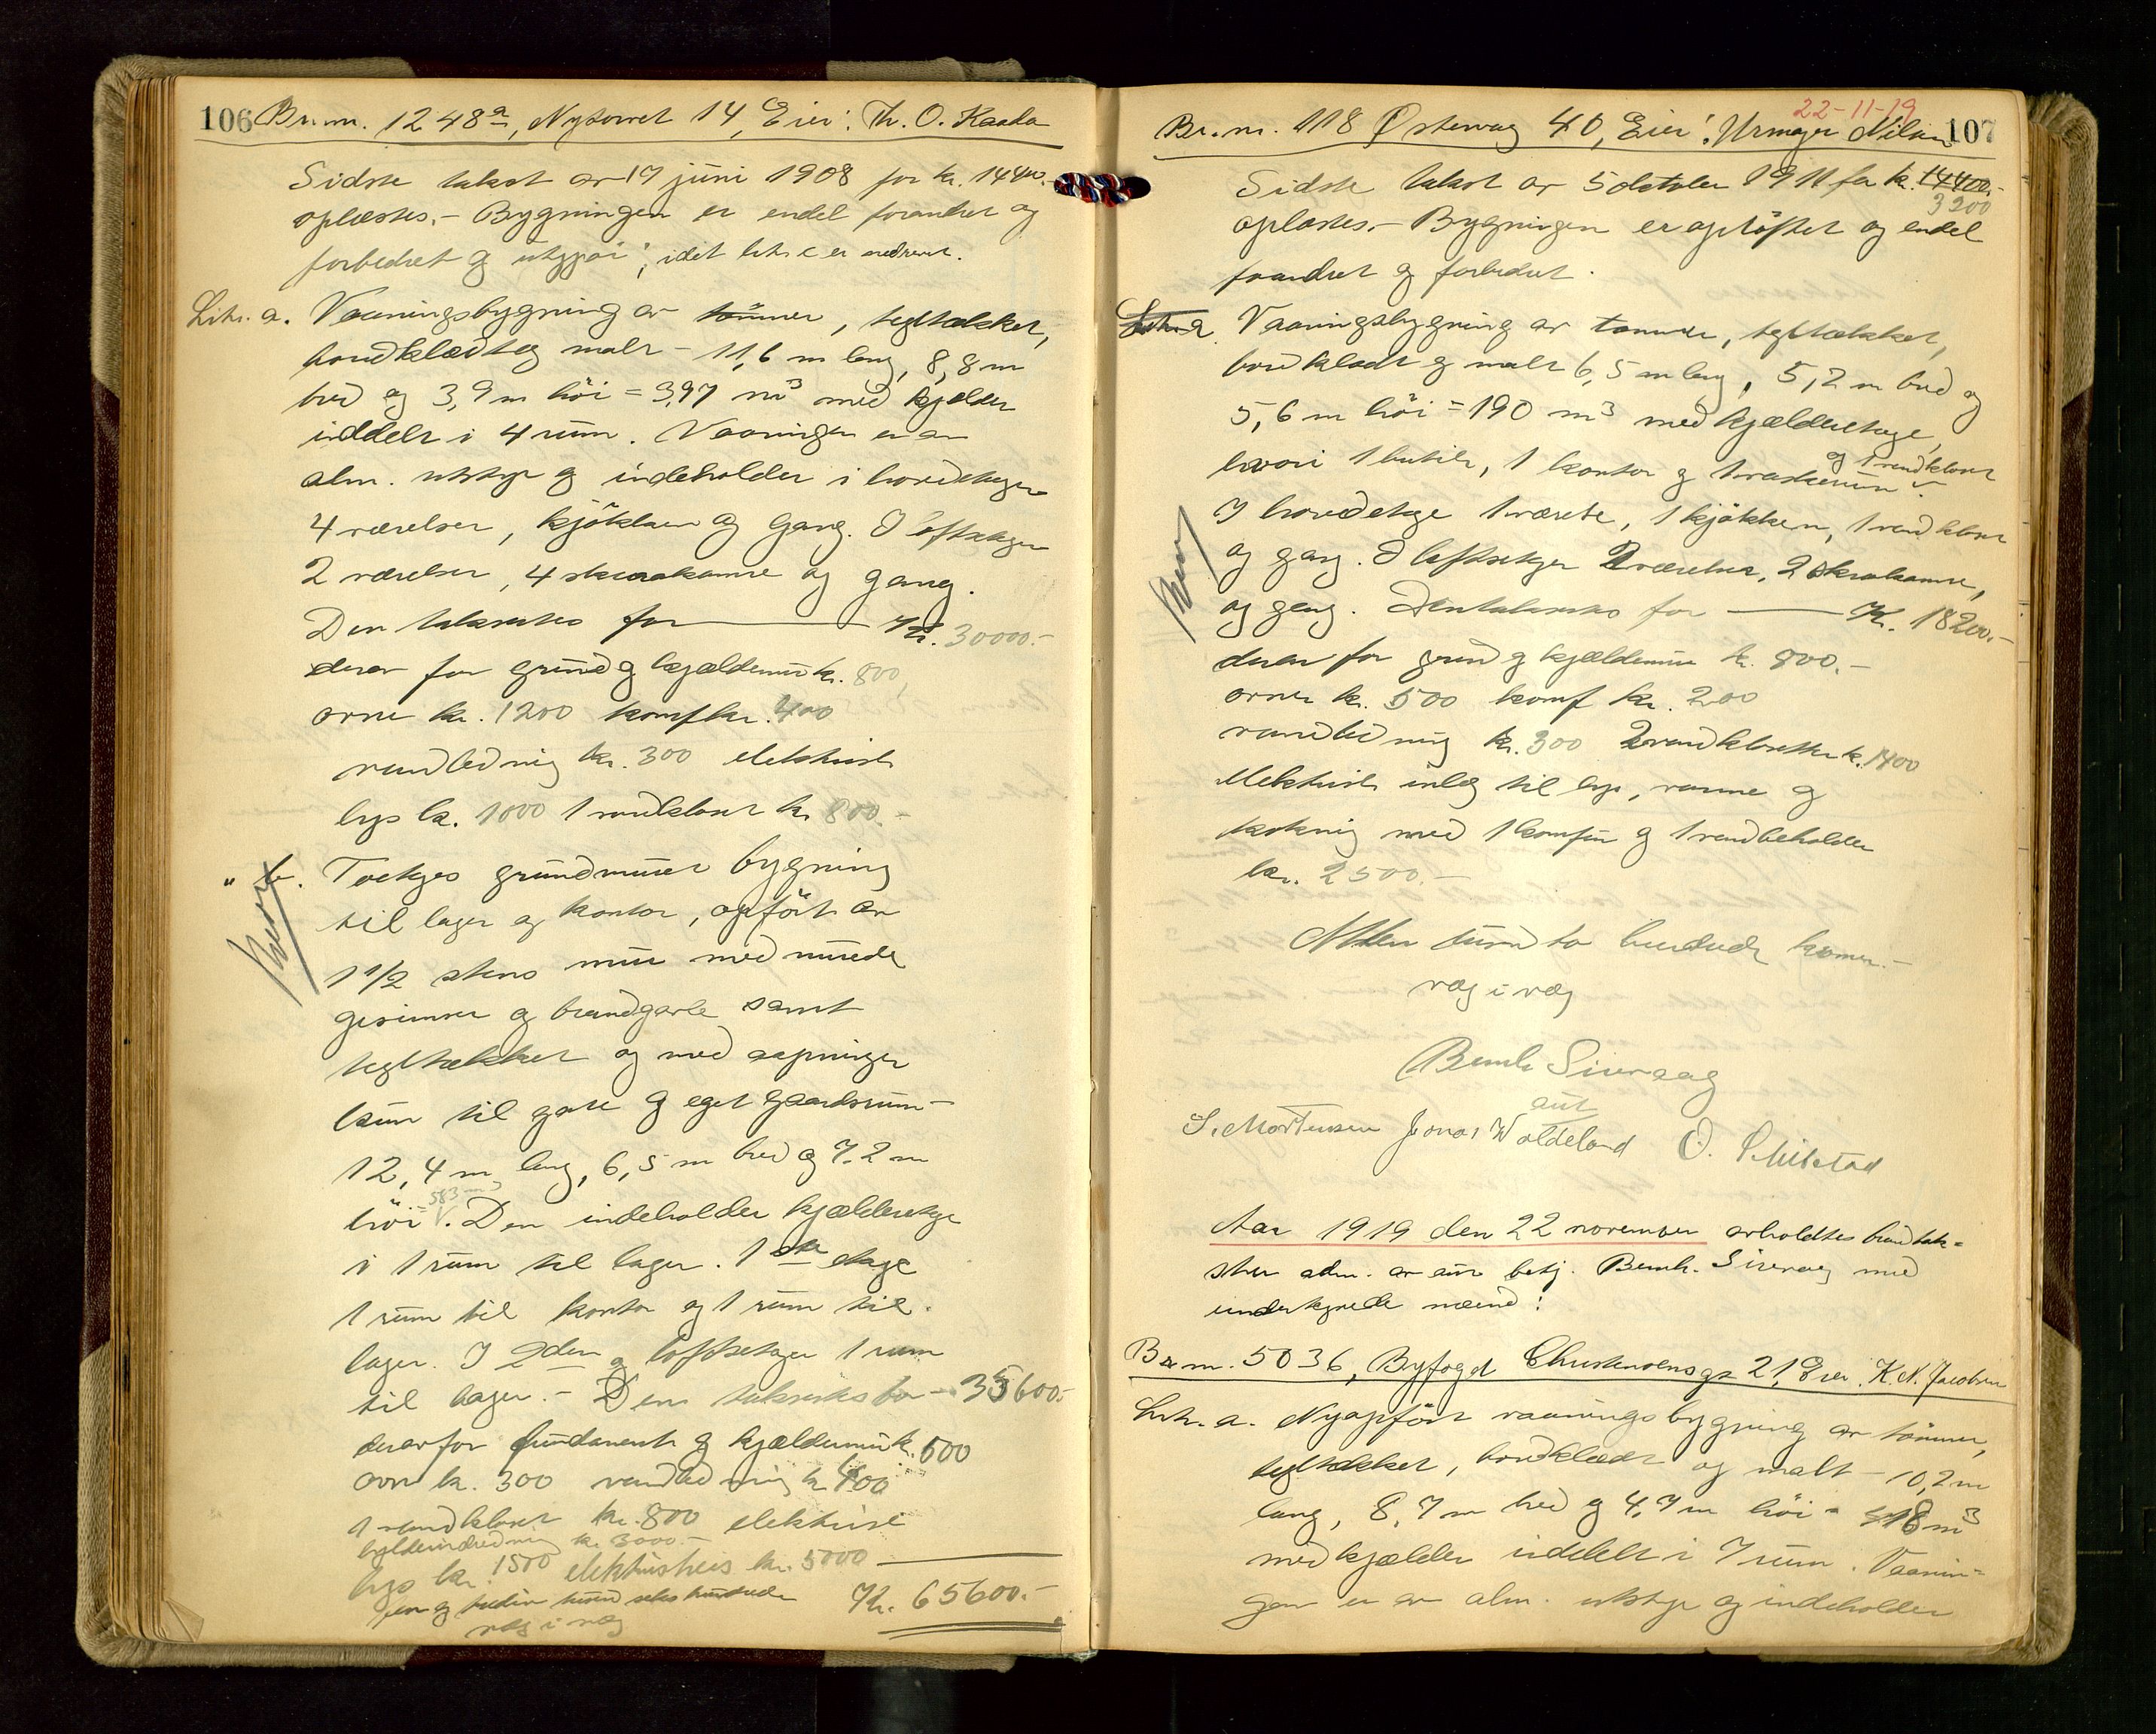 106 Br.nr. 1248a, Nytorvet 14, Eier: Th. O. Kaada
Sidste takst av 17 juni 1908 for kr. 14400.-
oplæstes.- Bygningen er endel forandret og
forbedret og utgjør, idet litr. c er nedrevet.
Litr. a. Vaaningsbygning av tømmer, tegltækket,
bordklædt og malt - 11,6 m lang, 8,8 m
bred og 3,9 m høi = 397 m3 med kjelder
inddelt i 4 rum. Vaaningen er av
alm. utstyr og indeholder i hovedetagen
4 værelser, kjøkken og gang. I loftsetagen
2 værelser, 4 skraakamre og gang.
Den takseres for Kr. 30000.-
derav for grund og kjældermur kr. 800,
ovne kr. 1200 komf kr. 400
vandledning kr. 300 elektrisk
lys kr. 1000 1 vandklosett kr. 800.-
" b. Toetages grundmuret bygning
til lager og kontor, opført av
1 1/2 stens mur med murede
gesimser og brandgavle samt
tegltækket og med aapninger
kun til gate og eget gaardsrum -
12,4 m lang, 6,5 m bred og 7,2 m
høi = 583 m3. Den indeholder kjælderetage
i 1 rum til lager. 1ste etage
1 rum til kontor og 1 rum til
lager. I 2den og loftsetagen 1 rum
til lager.- Den takseres for - 35600.-
derav for fundament og kjældermur k. 500
ovn kr. 300 vandledning kr 400
1 vandklosett kr. 800 elektrisk
hyldeindredning kr. 3000.-
lys kr. 1500 elektrisk heis kr. 5000
fem og tredive tusind seks hundrede Kr. 65600.-
væg i væg
22-11-19
Br.nr. 118 Østervag 40, Eier: Urmager Nilsen 107
Sidste takst av 5 oktober 1911 for kr. 14400.-
3200
oplæstes.- Bygningen er opløftet og endel
forandret og forbedret.
Litr. a. Vaaningsbygning av tømmer, tegltækket,
bordklædt og malt 6,5 m lang, 5,2 m bred og
5,6 m høi = 190 m3 med kjælderetage,
hvori 1 butik, 1 kontor og 1 vaskerum og 1 vandklosett
I hovedetage 1 værelse, 1 kjøkken, 1 vandklosett
og gang. I loftsetagen 2 værelser, 2 skraakamre,
og gang. Den takseres for Kr. 18200.-
derav for grund og kjældermur kr. 800.-
ovner kr. 500 komf kr. 200
vandledning kr. 300 2 vandklosetter k. 1400
elektrisk indlæg til lys, varme og
kokning med 1 komfur og 1 vandbeholder
kr. 2500.-
Atten tusind to hundrede kroner.-
væg i væg
Bernh Sirevaag
aut
S. Mortensen Jonas Woldeland O. Milstad
Aar 1919 den 22 november avholdtes brandtak-
ster adm. av aut betj. Bernh. Sirevaag med
underkjnede mænd:
Br.nr. 5036, Byfogd Christensensgt 21, Eier. K. N. Jacobsen
Litr. a. Nyopført vaaningsbygning av tømmer,
tegltækket, bordklædt og malt - 10,2 m
lang, 8,7 m bred og 4,7 m høi = 418 m3
med kjælder inddelt i 7 rum. Vaanin-
gen er av alm. utstyr og indeholder